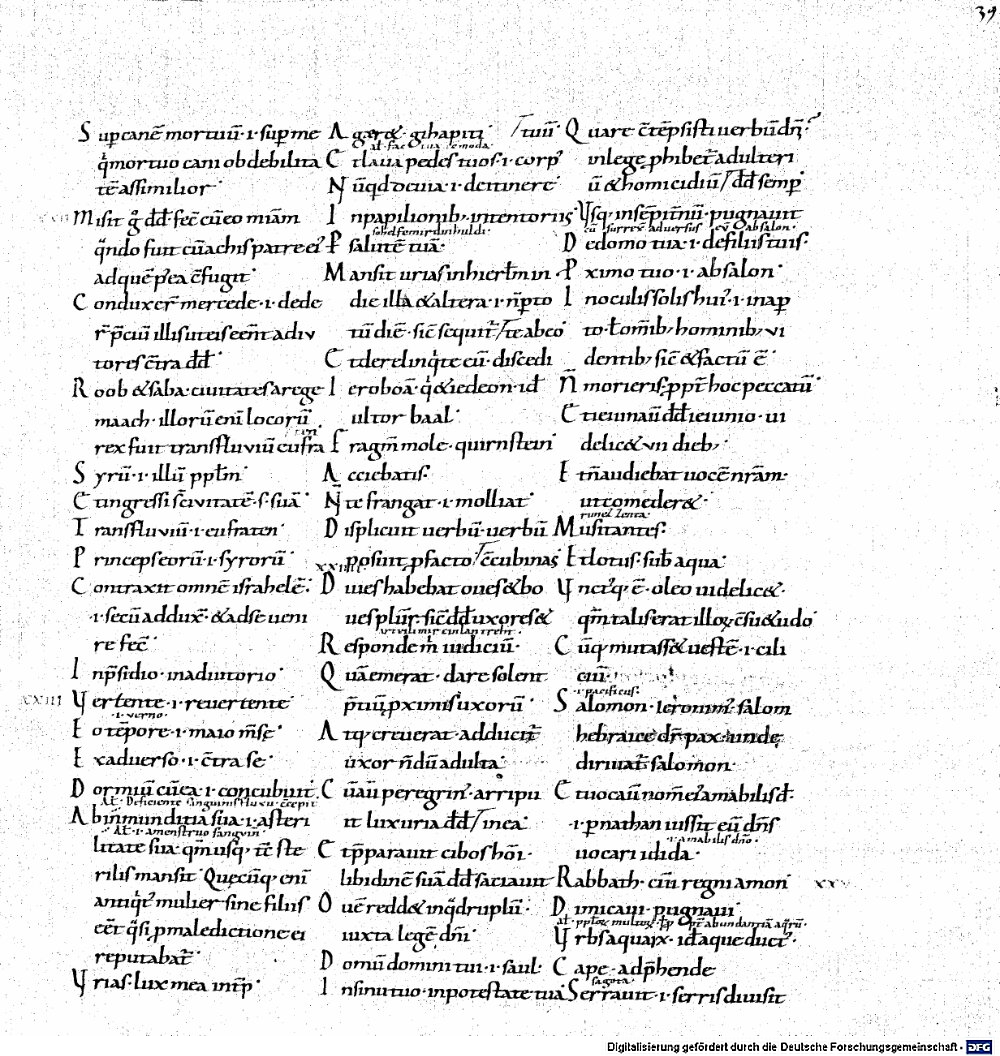 39
Sup canē mortuū · ı · sup me
q̄ mortuo cani ob debilita
tē assimilior·
Misit g̊ dd̄ · fec̄ cū eo miām
q̄ndo fuit cū achis patre ei᾽
ad quē p̄ea c̄ fugit·
Conduxer̄ mercede · ı · dede
r̄ p̄ciū illis ut eis eēnt adiu
tores c̄tra dd̄·
Roob & saba · ciuitates a rege
maach · illorū enī locorū
rex fuit trans fluuiū eufra
ten
Syrū · ı · illū pptm̄·
Et ingressi s̄ ciuitatē · s · suā·
Trans fluuiū · ı · eufraten·
Princeps eorū · ı · syrorū·
Contraxit omnē israhelē·
· ı · secū addux̄ · & ad se ueni
re fec̄·
In p̄sidio · in adiutorio·
XXIII Vertente · ı · reuertente·
· ı · uerno·
Eo tēpore · ı · maio m̄se·
Ex aduerso · ı · c̄tra se·
Dormiū cū ea · ı · concubuit·
At · Deficiente sanguinis fluxu c̄cepit
Ab inmunditia sua · ı · a steri
At · ı · a menstruo sanguin
litate sua · qm̄ usq; tē ste
rilis mansit· Quęcūq; enī
antiqt᾽ mulier sine filiis
eēt q̄si p maledictione ei
reputabat̄·
Vrias · lux mea intp̄·
Agar& · gihapiti·
Et laua pedes tuos · ı · corp᾽
Nūqd ociua · ı · detinere·
In papilionib; · in tentoriis·
Psalutē tuā·
Mansit urias in hierłm in
die illa & altera · ı · n̄ pto
tū diē · sic̄ sequit᾽ / te abeo
Et derelinq̄te cū · discedi
Ieroboā · q̄ & iedeon · id
ultor baal·
Fragm̄ mole · quirnstein
Acciebatis·
Ne te frangat · ı · molliat·
Displicuit uerbū · uerbū
posuit p facto / c̄cubinas
XXIIII Diues habebat oues & bo
ues plur̄ · sic̄ dd̄ uxores &
Responde m̄ iudiciū·
Quā emerat · dare solent
p̄tiū p ximis uxorū·
Atq; creuerat · adducit᾽
uxor n̄dū adulta·
Cū aū peregrin᾽ · arripu
it luxuria dd̄ / in ea·
Et p̄parauit cibos hōi·
libidinē suā dd̄ saciauit
Ouē redd& inq̄druplū·
iuxta legē dn̄i·
Domū domini tui · ı · saul·
In sinu tuo · in potestate tua
/ tuū· Quare c̄tēpsisti uerbū dn̄i
in lege phibet̄ adulteri
ū & homicidiū / dd̄ semp̄
Vsq; in sēpit̄nū · pugnauit
cū surrex̄ aduersus eū absalon·
De domo tua · ı · de filiis tuis·
Pximo tuo · ı · absalon·
In oculis solis hui᾽ · ı · in ap
to · t omib; hominib; ui
dentib; sic̄ & factū ē·
N̄ morieris · ppt̄ hoc peccatū·
Et ieiunauū dd̄ ieiunio · ui
delic& · vii dieb;·
Et n̄ audiebat uocē nr̄am·
ut comeder&·
runezenta·
Musitantes·
Et lotus · sub aqua·
Vnct᾽q; ē · oleo uidelic&·
qm̄ taliserat illorum c̄suetudo·
Cūq; mutass& uestē · ı · cili
ciū·
· ı · pacificus·
Salomon · ieronim᾽ · salom
hebraice dr̄ pax · unde
diriuat̄ salomon·
Et uocauī nom̄ ei᾽ amabilis d·
· ı · p nathan iussit eū dn̄s
· ı · amabilis dn̄o·
uocari idida·
Rabbath · ciui regni amon· XXV
Dimicaui · pugnaui·
Vrbs aquarum · id aque duct᾽·
Cape · adp̄hende
sagota·
Serrauit · ı · serris diuisit
Digitalisierung gefördert durch die Deutsche Forschungsgemeinschaft - DFG